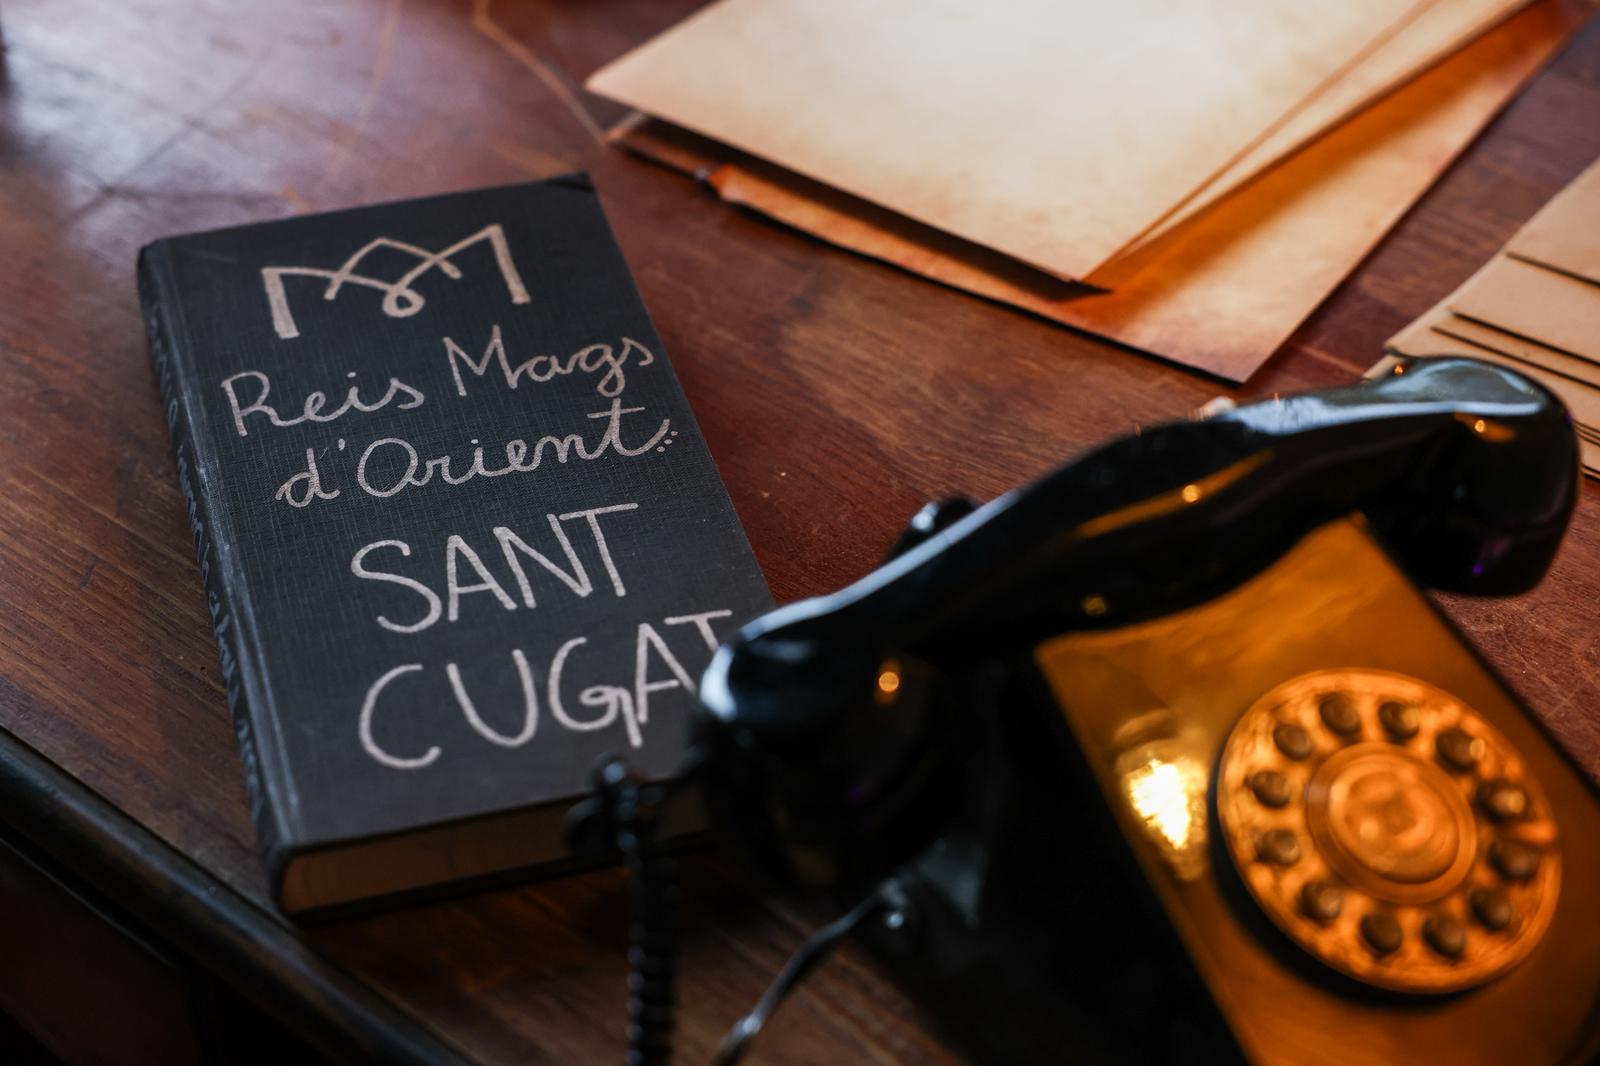 Reis Mags
d'Orient
SANT
CUGAT